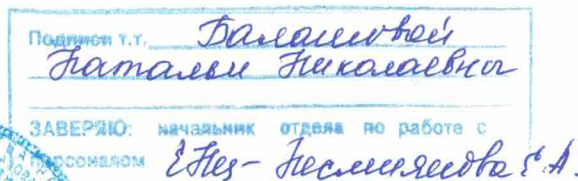 Подписи т.т. Балашовой
Натальи Николаевны
ЗАВЕРЯЮ: начальник отдела по работе с
персоналом Е.А.